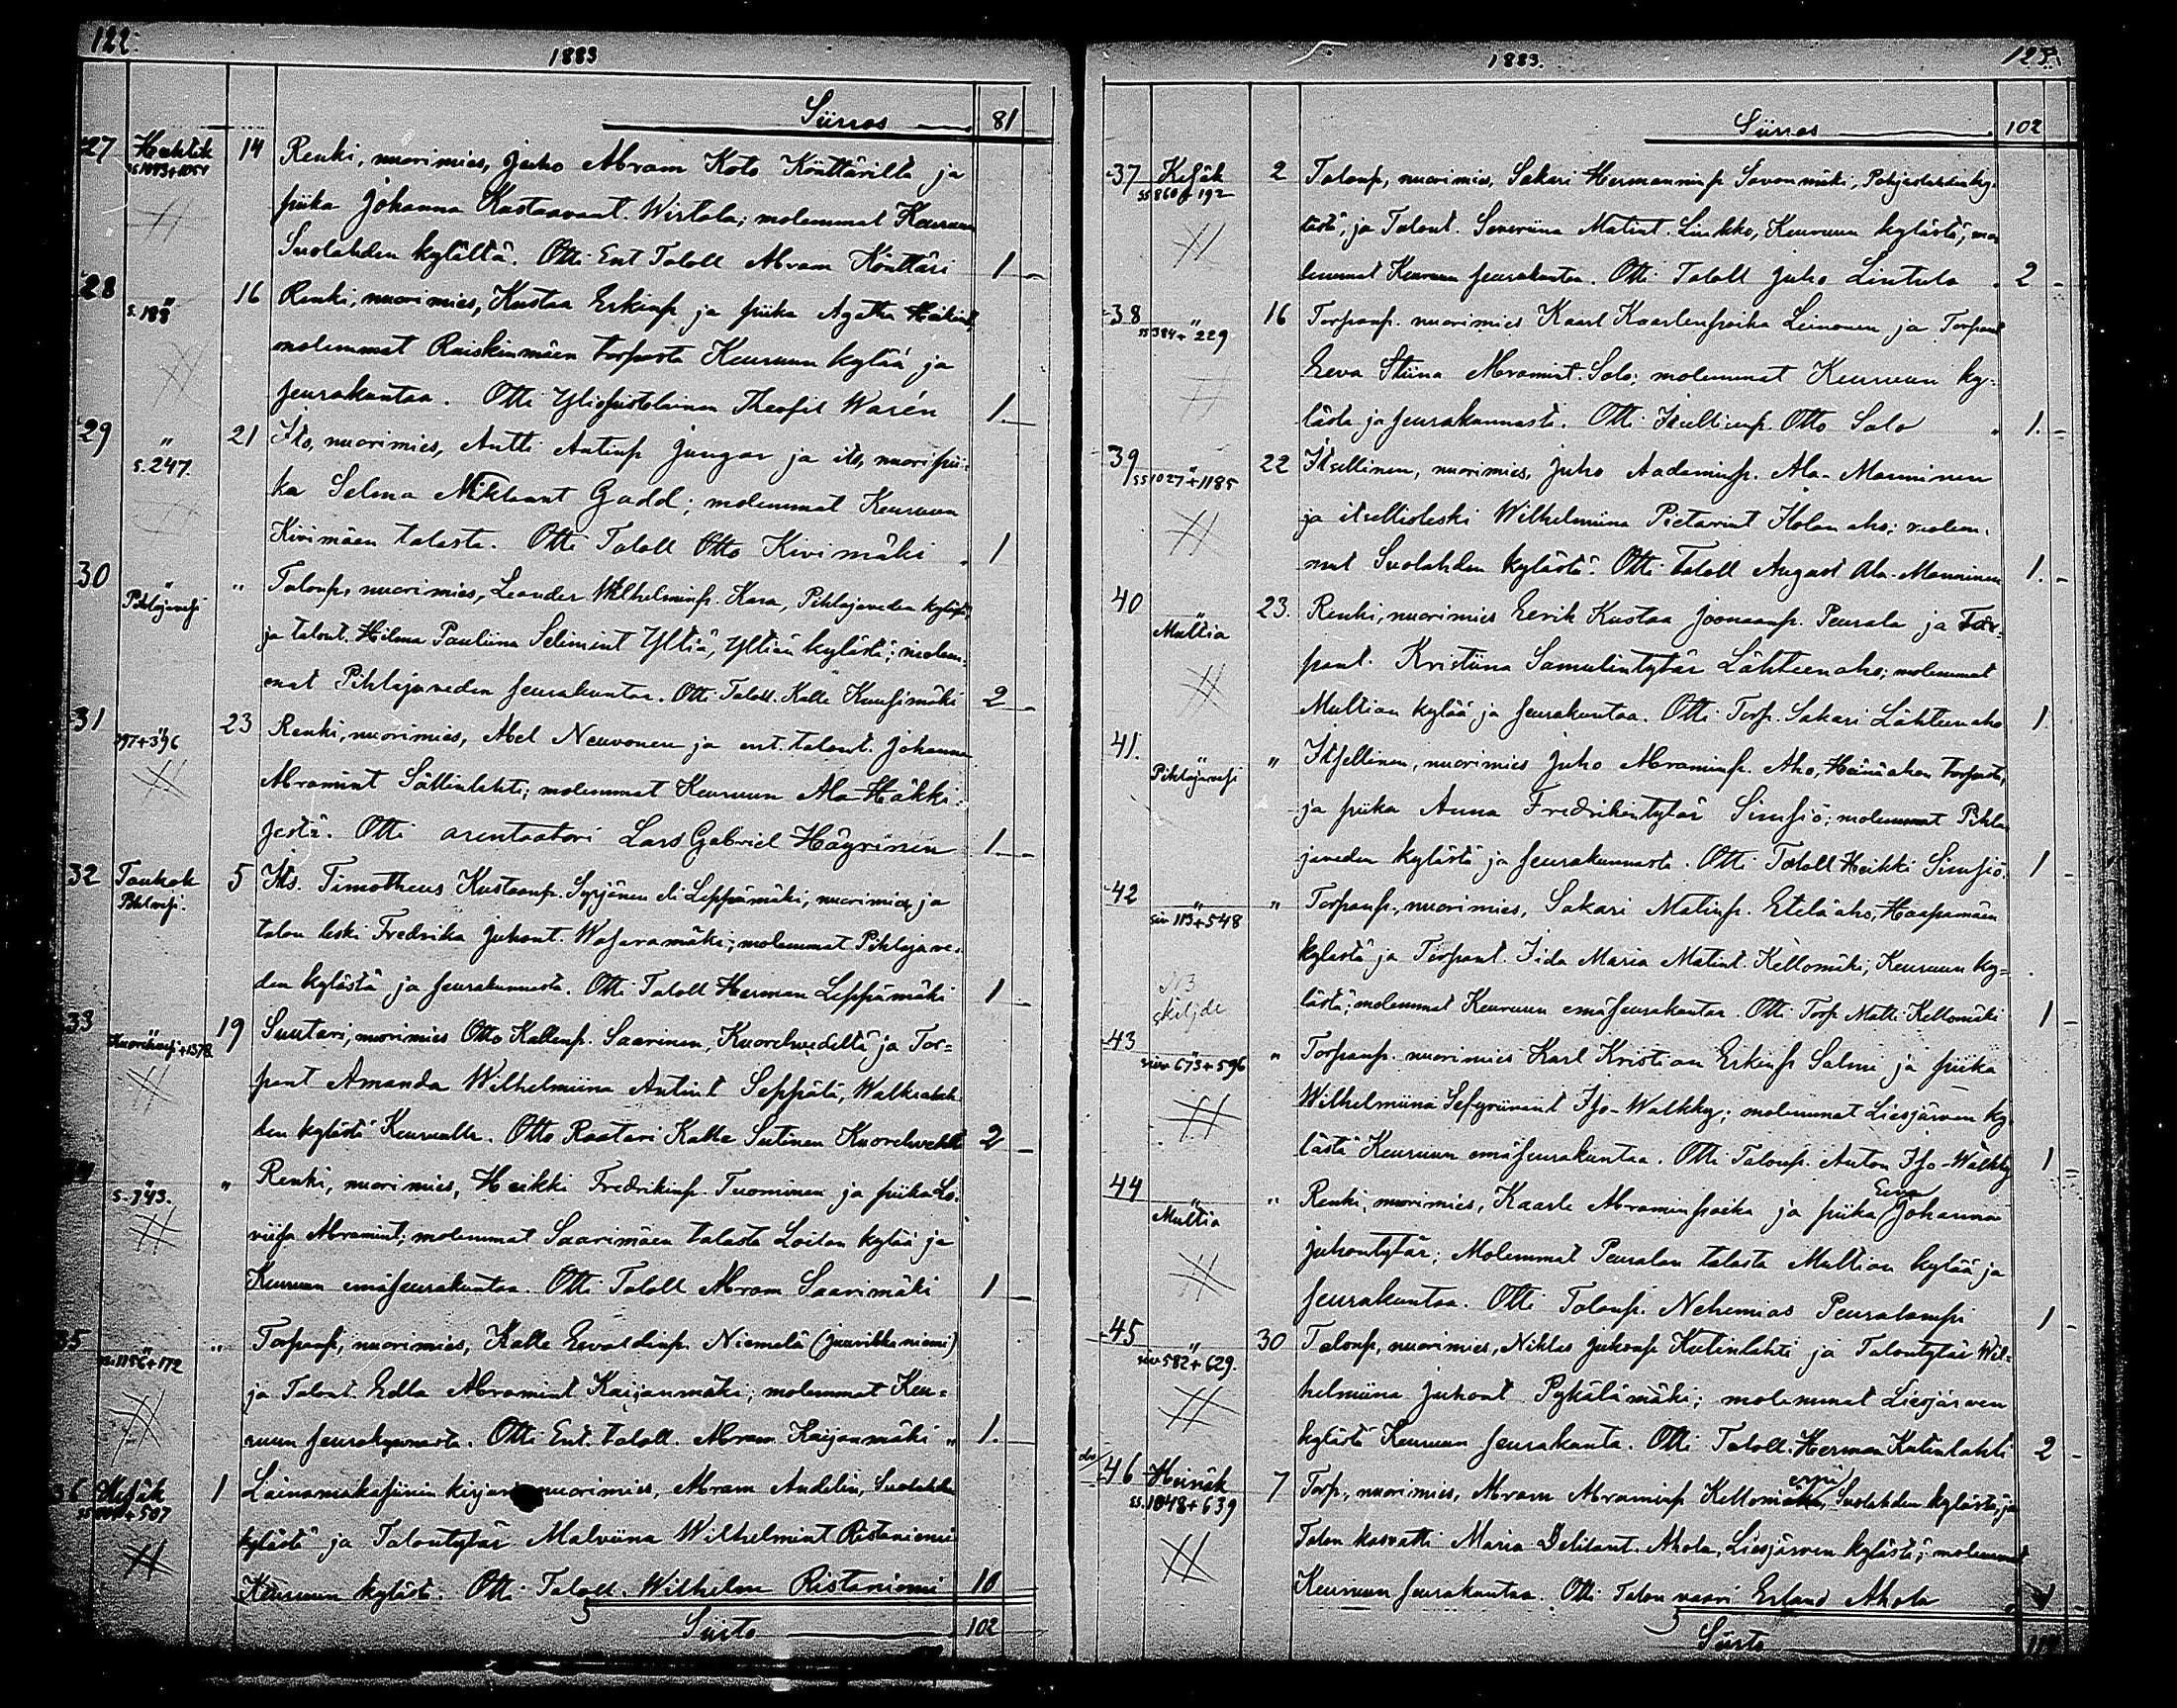 122.
1883
Siirros 81
27 Huhtik 14 Renki, nuorimies, Juho Abram Koto Könttäriltä ja
piika Johanna Kustaavant. Wirtala; molemmat Keuruun
Suolahden kylältä. Otti Ent Taloll Abram Könttäri 1
28 s. 188 16 Renki, nuorimies, Kustaa Erkinp ja piika Agatha Heikint,
molemmat Raiskinmäen torpasta Keuruun kylää ja
seurakuntaa. Otti Yliopistolainen Theofil Warén 1.
29 " s. 247. 21 Its, nuorimies, Antti Antinp Jungar ja its, nuoripii-
ka Selma Niklaant Gadd; molemmat Keuruun
Kivimäen talosta. Otti Taloll Otto Kivimäki 1
30 " Pihlajavesi " Talonp, nuorimies, Leander Wilhelminp. Kara, Pihlajaveden kylästä,
ja talont. Hilma Pauliina Selimint Yltiä, Yltiän kylästä; molem-
mat Pihlajaveden seurakuntaa. Otti Taloll. Kalle Kuusimäki 2
31 297+396 23 Renki, nuorimies, Abel Neuvonen ja ent. talont. Johanna
Abramint Sällinlahti; molemmat Keuruun Ala-Häkki-
sestä. Otti arentaatori Lars Gabriel Häyrinen 1.
32 Toukok Pihlvesi. 5 Its. Timotheus Kustaanp. Syrjänen eli Leppämäki, nuorimies, ja
talon leski Fredrika Juhont. Wasaramäki; molemmat Pihlajave-
den kylästä ja seurakunnasta. Otti Taloll Herman Leppämäki 1
33 Kuorehvesi+1378 19 Suutari, nuorimies Otto Kallenp. Saarinen, Kuorehvedeltä ja Tor-
pant Amanda Wilhelmiina Antint Seppälä, Walkealah-
den kylästä Keuruulla. Otto Raatari Kalle Sutinen Kuorehvedeltä 2
s. 743. " Renki, nuorimies, Heikki Fredrikinp. Tuominen ja piika Lo-
viisa Abramint; molemmat Saarimäen talosta Loilan kylää ja
Keuruun emäseurakuntaa. Otti Taloll Abram Saarimäki 1
35 1156+172 " Torpanp, nuorimies, Kalle Eevaldinp. Niemelä (Juurikkaniemi)
ja Talont. Edla Abramint Kaijanmäki; molemmat Keu-
ruun seurakunnasta. Otti Ent. taloll. Abram Kaijanmäki " 1.
36 Kesäk +507 1 Lainamakasiinin kirjuri nuorimies, Abram Andelin, Suolahden
kylästä ja Talontytär Malviina Wilhelmint Ristaniemi
Keuruun kyläst. Otti Taloll. Wilhelm Ristaniemi 10
Siirto 102
1883.
123.
Siirros 102
37 Kesäk ss 860+192 2 Talonp, nuorimies, Sakari Hermanninp Savonmäki, Pohjaslahden ky-
lästä, ja Talont. Severiina Matint. Linkko, Keuruun kylästä; mo-
lemmat Keuruun seurakuntaa. Otti Taloll Juho Lintula 2
38 ss 384+229 16 Torpanp. nuorimies Kaarl Kaarlenpoika Leinonen ja Torpant
Eeva Stiina Abramint. Salo; molemmat Keuruun ky-
lästä ja seurakunnasta. Otti Itsellinp. Otto Salo 1.
39 ss 1027+1185 22 Itsellinen, nuorimies, Juho Aadaminp. Ala-Manninen
ja itsellisleski Wilhelmiina Pietarint Kolunaho; molem-
mat Suolahden kylästä. Otti Taloll August Ala-Manninen 1.
40 " Multia 23. Renki, nuorimies Eerik Kustaa Joonaanp. Peurala ja Tor-
pant. Kristiina Samulintytär Lähteenaho; molemmat
Multian kylää ja seurakuntaa. Otti Torp. Sakari Lähteenaho 1
41. " Pihlajavesi " Itsellinen, nuorimies Juho Abraminp. Aho, Heinäahon torpasta,
ja piika Anna Fredrikintytär Simsiö; molemmat Pihla-
javeden kylästä ja seurakunnasta. Otti Taloll Heikki Simsiö. 1
42 " siv 113+548 " Torpanp., nuorimies, Sakari Matinp. Eteläaho, Haapamäen
kylästä ja Torpant. Iida Maria Matint. Kellomäki, Keuruun ky-
skiljde lästä; molemmat Keuruun emäseurakuntaa. Otti Torp Matti Kellomäki 1
43 " siv 673+596 " Torpanp. nuorimies Karl Kristian Erkinp Salmi ja piika
Wilhelmiina Sefyriinint Iso-Walkky; molemmat Liesjärven ky-
lästä Keuruun emäseurakuntaa. Otti Talonp. Anton Iso-Walkky 1
44 " Multia " Renki, nuorimies, Kaarle Abraminpoika ja piika Eeva Johanna
Juhontytär; Molemmat Peuralan talosta Multian kylää ja
seurakuntaa. Otti Talonp. Nehemias Peuralampi 1
45 " siv 582+629. 30 Talonp, nuorimies, Niklas Juhonp Kutinlahti ja Talontytär Wil-
helmiina Juhont Pykälämäki; molemmat Liesjärven
kylästä Keuruun seurakunta. Otti Taloll. Herman Kutinlahti 2
46 Heinäk ss. 1048+639 7 Torp., nuorimies, Abram Abraminp Kelloniemi, Suolahden kylästä, ja
Talon kasvatti Maria Delilant. Ahola, Liesjärven kylästä; molemmat
Keuruun seurakuntaa. Otti Talon vaari Erland Ahola 1
Siirto